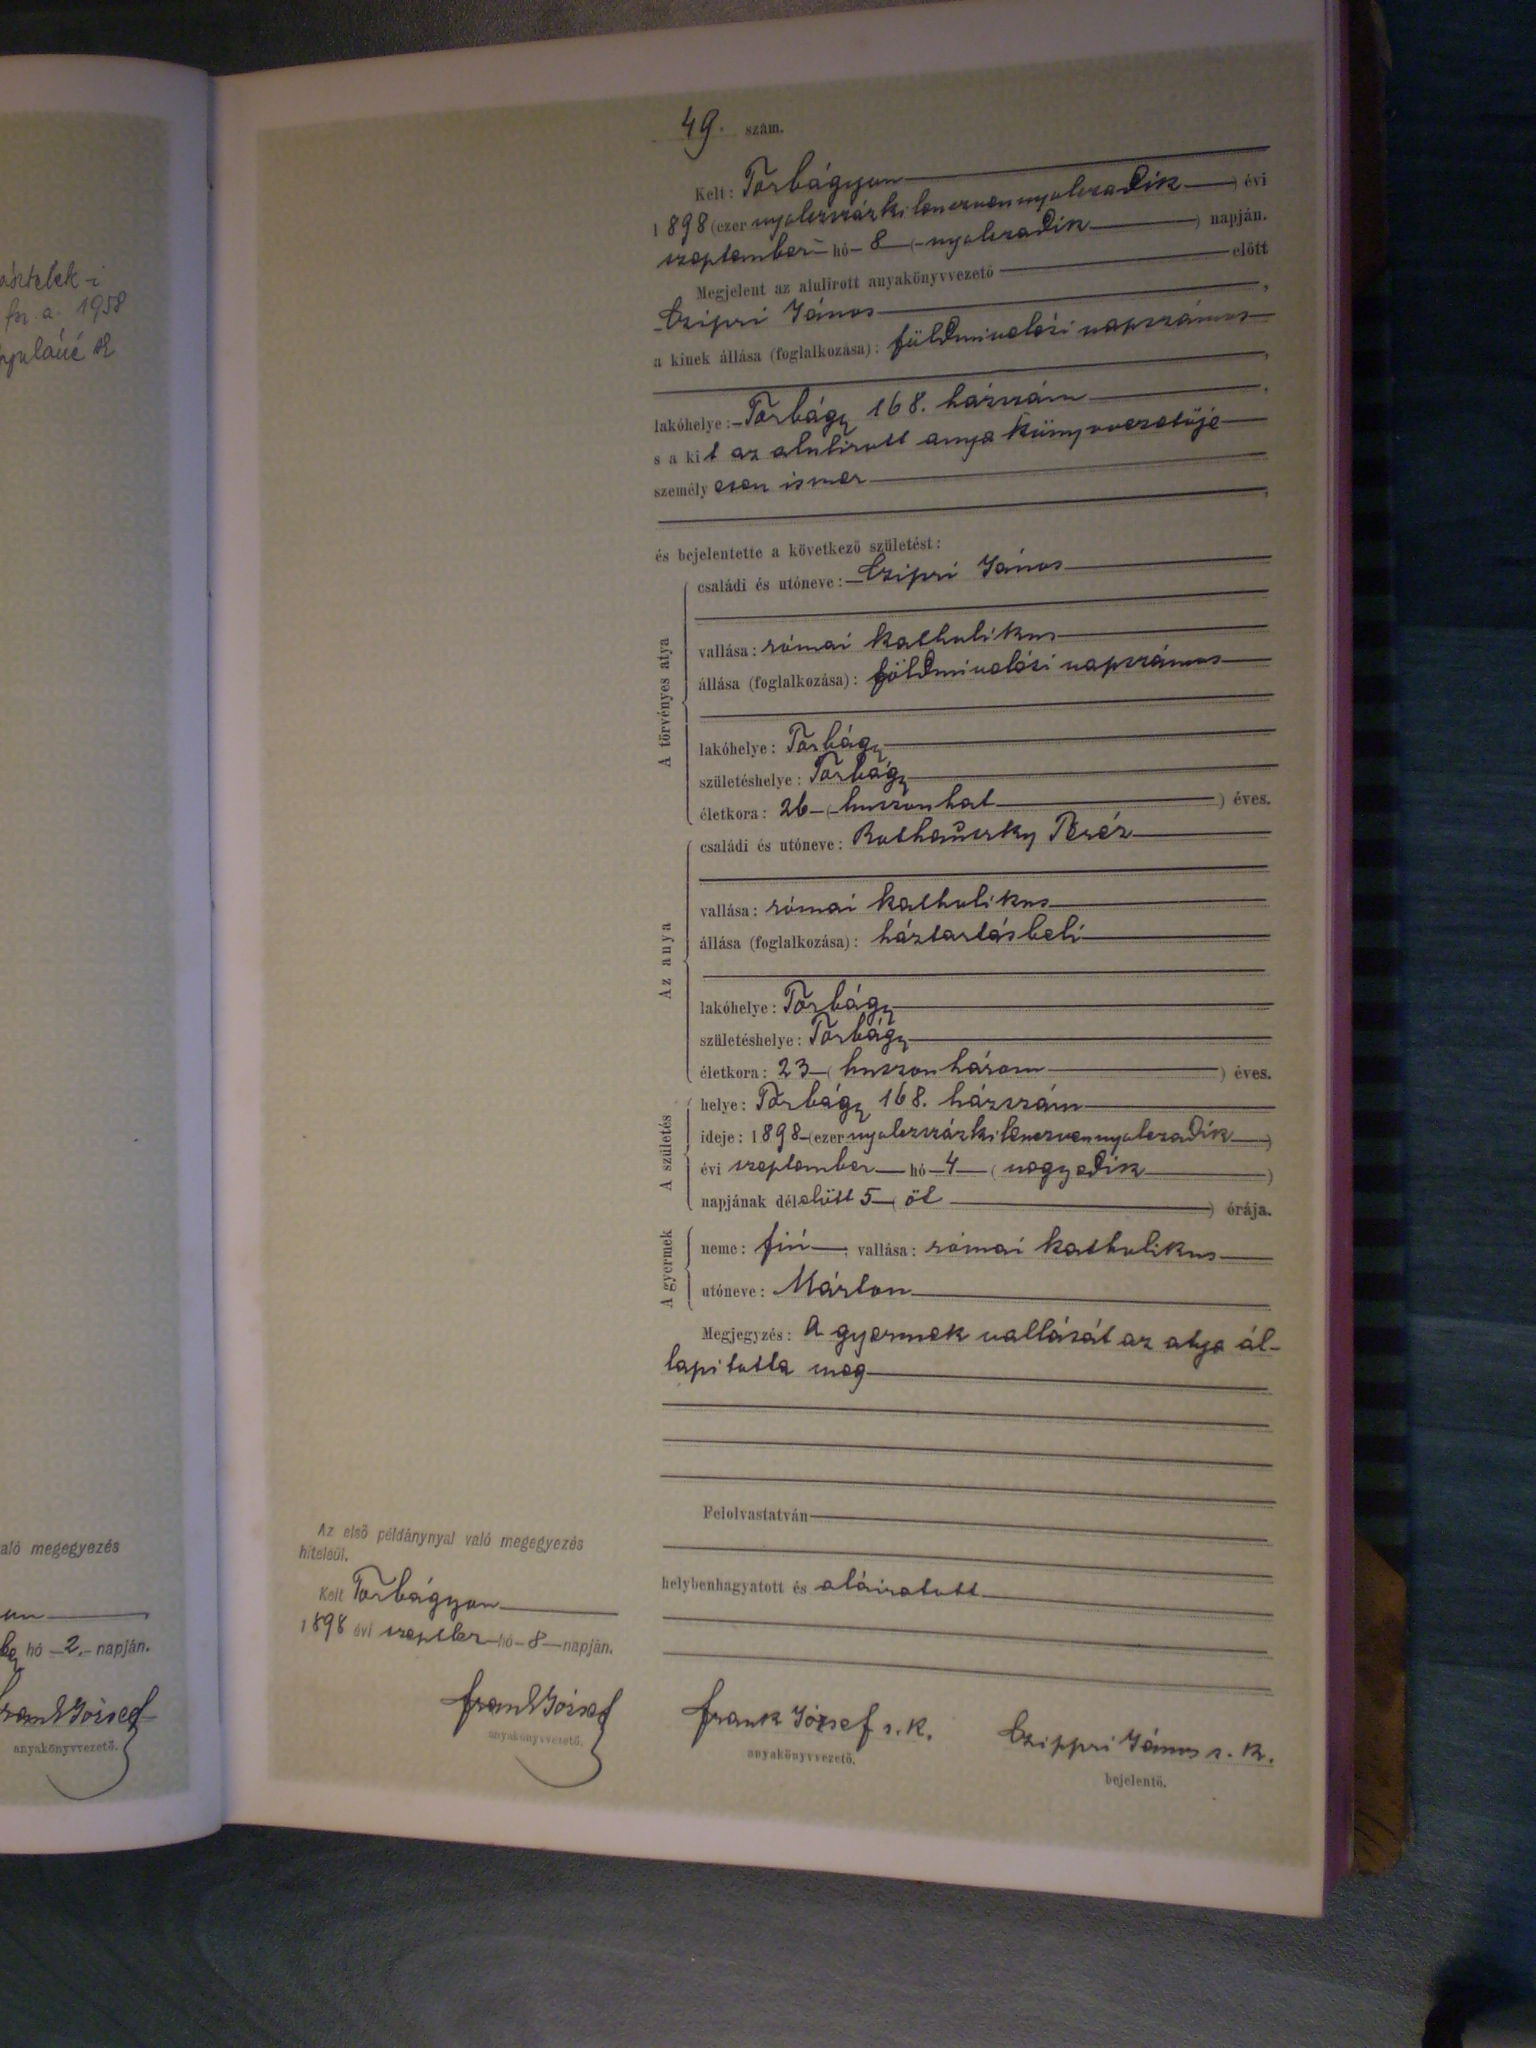 49. szám.
Kelt: Torbágyon
1898 (ezer nyolczszázkilenczvennyolczadik) évi
szeptember hó 8 (nyolczadik) napján.
Megjelent az alulirott anyakönyvvezető előtt
Czipri János,
a kinek állása (foglalkozása): földmivelési napszámos
,
lakóhelye: Torbágy 168. házszám,
s a kit az alulirott anyakönyvvezetője
személyesen ismer
,
és bejelentette a következő születést:
A törvényes atya
családi és utóneve: Czipri János
vallása: római katholikus
állása (foglalkozása): földmivelési napszámos
lakóhelye: Torbágy
születéshelye: Torbágy
életkora: 26 (huszonhat) éves.
Az anya
családi és utóneve: Teréz
vallása: római katholikus
állása (foglalkozása): háztartásbeli
lakóhelye: Torbágy
születéshelye: Torbágy
életkora: 23 (huszonhárom) éves.
A születés
helye: Torbágy 168. házszám
ideje: 1898 (ezer nyolczszázkilenczvennyolczadik)
évi szeptember hó 4 (negyedik)
napjának délelőtt 5 (öt) órája.
A gyermek
neme: fiú; vallása: római katholikus
utóneve: Márton
Megjegyzés: A gyermek vallását az atyja ál-
lapitotta meg
Felolvastatván
helybenhagyatott és aláiratott
Frank József s. k.
anyakönyvvezető.
Czippri János s. k.
bejelentő.
Az első példánynyal való megegyezés
hiteléül.
Kelt Torbágyon
1898 évi szeptber hó 8 napján.
Frank József
anyakönyvvezető.
fsz. a. 1958
aló megegyezés
hó 2. napján.
anyakönyvvezető.